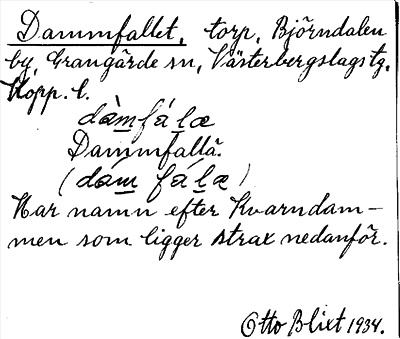 Dammfallet, torp, Björndalen
by, Grangärde sn, Västerbergslags tg,
Kopp. l.
dàmfálæ
Dammfallä.
(dám fálæ)
Har namn efter Kvarndam-
men som ligger strax nedanför.
Otto Blixt 1934.